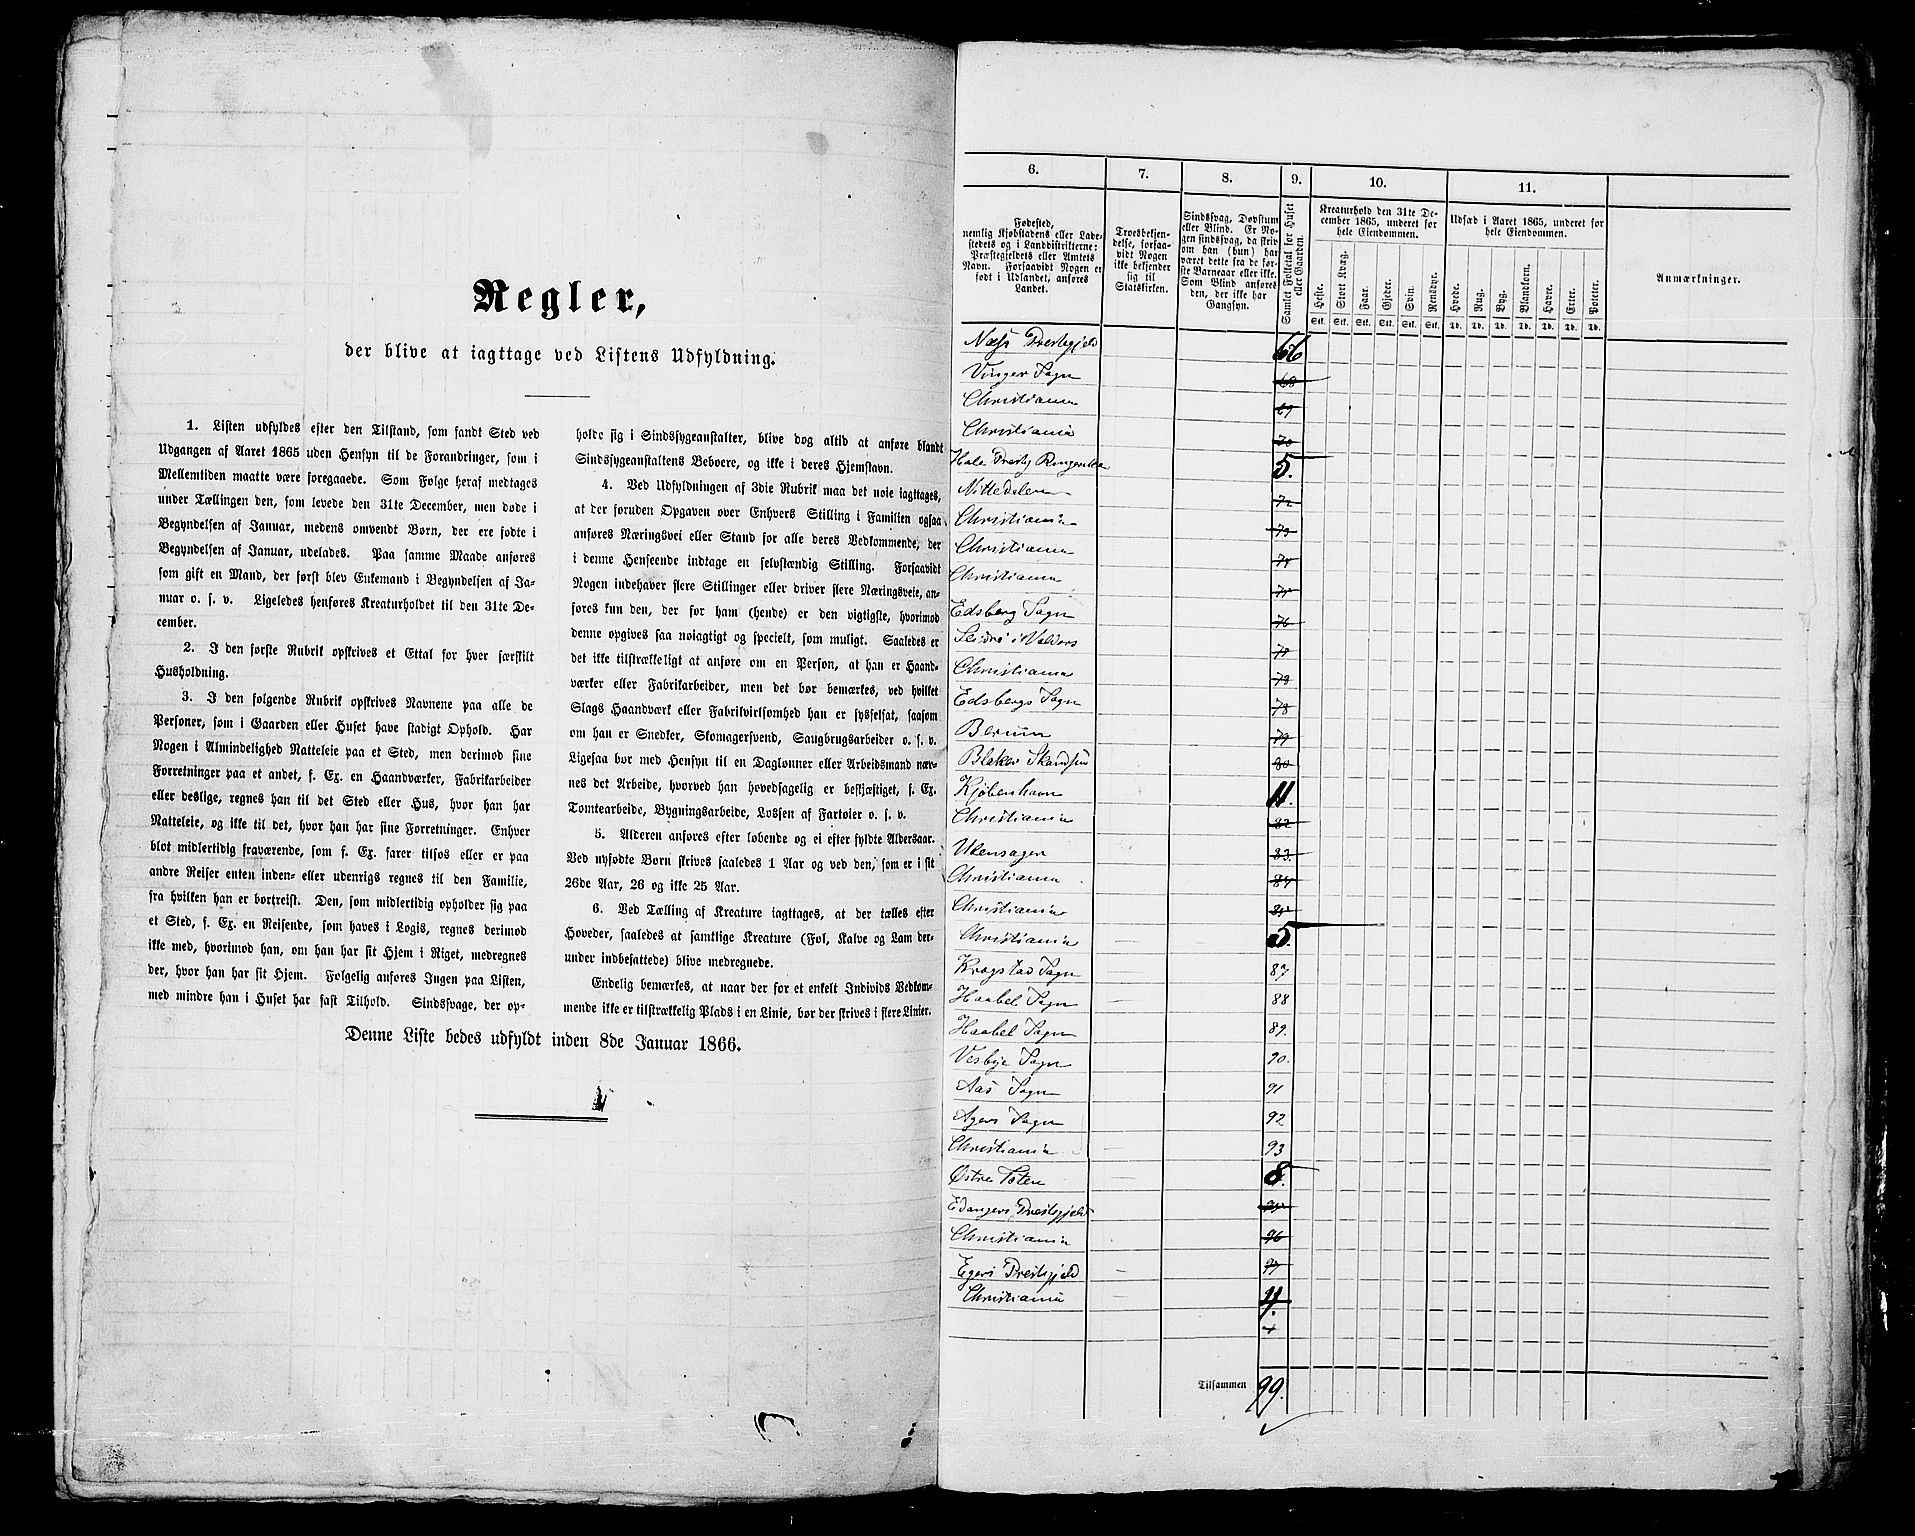 Regler,
der blive at iagttage ved Listens Udfyldning.
1. Listen udfyldes efter den Tilstand, som fandt Sted ved
Udgangen af Aaret 1865 uden Hensyn til de Forandringer, som i
Mellemtiden maatte være foregaaede. Som Følge heraf medtages
under Tællingen den, som levede den 31te December, men døde i
Begyndelsen af Januar, medens omvendt Børn, der ere fødte i
Begyndelsen af Januar, udelades. Paa samme Maade anføres
som gift en Mand, der først blev Enkemand i Begyndelsen af Ja-
nuar o. s. v. Ligeledes henføres Kreaturholdet til den 31te De-
cember.
2. I den første Rubrik opskrives et Ettal for hver særskilt
Husholdning.
3. I den følgende Rubrik opskrives Navnene paa alle de
Personer, som i Gaarden eller Huset have stadigt Ophold. Har
Nogen i Almindelighed Natteleie paa et Sted, men derimod sine
Forretninger paa et andet, f. Ex. en Haandværker, Fabrikarbeider
eller deslige, regnes han til det Sted eller Hus, hvor han har
Natteleie, og ikke til det, hvor han har sine Forretninger. Enhver
blot midlertidig fraværende, som f. Ex. farer tilsøs eller er paa
andre Reiser enten inden- eller udenrigs regnes til den Familie,
fra hvilken han er bortreist. Den, som midlertidig opholder sig paa
et Sted, f. Ex. en Reisende, som haves i Logis, regnes derimod
ikke med, hvorimod han, om han har sit Hjem i Riget, medregnes
der, hvor han har sit Hjem. Følgelig anføres Ingen paa Listen,
med mindre han i Huset har fast Tilhold. Sindssvage, der op-
holde sig i Sindssygeanstalter, blive dog altid at anføre blandt
Sindssygeanstaltens Beboere, og ikke i deres Hjemstavn.
4. Ved Udfyldningen af 3die Rubrik maa det nøie iagttages,
at der foruden Opgaven over Enhvers Stilling i Familien ogsaa
anføres Næringsvei eller Stand for alle deres Vedkommende, der
i denne Henseende indtage en selvstændig Stilling. Forsaavidt
Nogen indehaver flere Stillinger eller driver flere Næringsveie, an-
føres kun den, der for ham (hende) er den vigtigste, hvorimod
denne opgives saa nøiagtigt og specielt, som muligt. Saaledes er
det ikke tilstrækkeligt at anføre om en Person, at han er Haand-
værker eller Fabrikarbeider, men det bør bemærkes, ved hvilket
Slags Haandværk eller Fabrikvirksomhed han er sysselsat, saasom
om han er Snedker, Skomagersvend, Saugbrugsarbeider o. s. v.
Ligesaa bør med Hensyn til en Daglønner eller Arbeidsmand næv-
nes det Arbeide, hvorved han hovedsagelig er beskjæftiget, f. Ex.
Tomtearbeide, Bygningsarbeide, Lossen af Fartøier o. s. v.
5. Alderen anføres efter løbende og ei efter fyldte Aldersaar.
Ved nyfødte Børn skrives saaledes 1 Aar og ved den, som er i sit
26de Aar, 26 og ikke 25 Aar.
6. Ved Tælling af Kreature iagttages, at der tælles efter
Hoveder, saaledes at samtlige Kreature (Føl, Kalve og Lam der-
under indbefattede) blive medregnede.
Endelig bemærkes, at naar der for et enkelt Individs Vedkom-
mende ikke er tilstrækkelig Plads i en Linie, bør der skrives i flere Linier.
Denne Liste bedes udfyldt inden 8de Januar 1866.
6. 7. 8. 9. 10. 11.
Fødested,
nemlig Kjøbstadens eller Lade-
stedets og i Landdistrikterne:
Præstegjeldets eller Amtets
Navn. Forsaavidt Nogen er
født i Udlandet, anføres
Landet.
Troesbekjen-
delse, forsaa-
vidt Nogen
ikke bekjender
sig til
Statskirken.
Sindssvag, Døvstum
eller Blind. Er No-
gen sindssvag, da skriv
om han (hun) har
været dette fra de før-
ste Barneaar eller ikke.
Som Blind anføres
den, der ikke har
Gangsyn.
Samlet Folketal for Huset
eller Gaarden.
Kreaturhold den 31te De-
cember 1865, underet for
hele Eiendommen.
Heste. Stort Kvæg. Faar. Gjeder. Svin. Rensdyr.
Stk. Stk. Stk. Stk. Stk. Stk.
Udsæd i Aaret 1865, underet for
hele Eiendommen.
Hvede. Rug. Byg. Blandkorn. Havre. Erter. Poteter.
Td. Td. Td. Td. Td. Td. Td.
Anmærkninger.
Næss Prestegjeld 66
Vinger Sogn 68
Christiania 69
Christiania 70
Hole Prestg Ringerike 5.
Nittedalen 72
Christiania 73
Christiania 74
Christiania 75
Edsberg Sogn 76
Slidre i Valders 77
Christiania 78
Edsbergs Sogn 78
Berum 79
Blaker Skandse 80
Kjøbenhavn 11.
Christiania 82
Ukensogn 83
Christiania 84
Christiania 85
Christiania 5.
Krogstad Sogn 87
Haabel Sogn 88
Haabel Sogn 89.
Vestbye Sogn 90.
Aas Sogn 91
Agers Sogn 92
Christiania 93
Østre Toten 8.
Edangers Prestegjeld 95
Christiania 96
Egers Prestegjeld 97
Christiania 4.
Tilsammen 99.